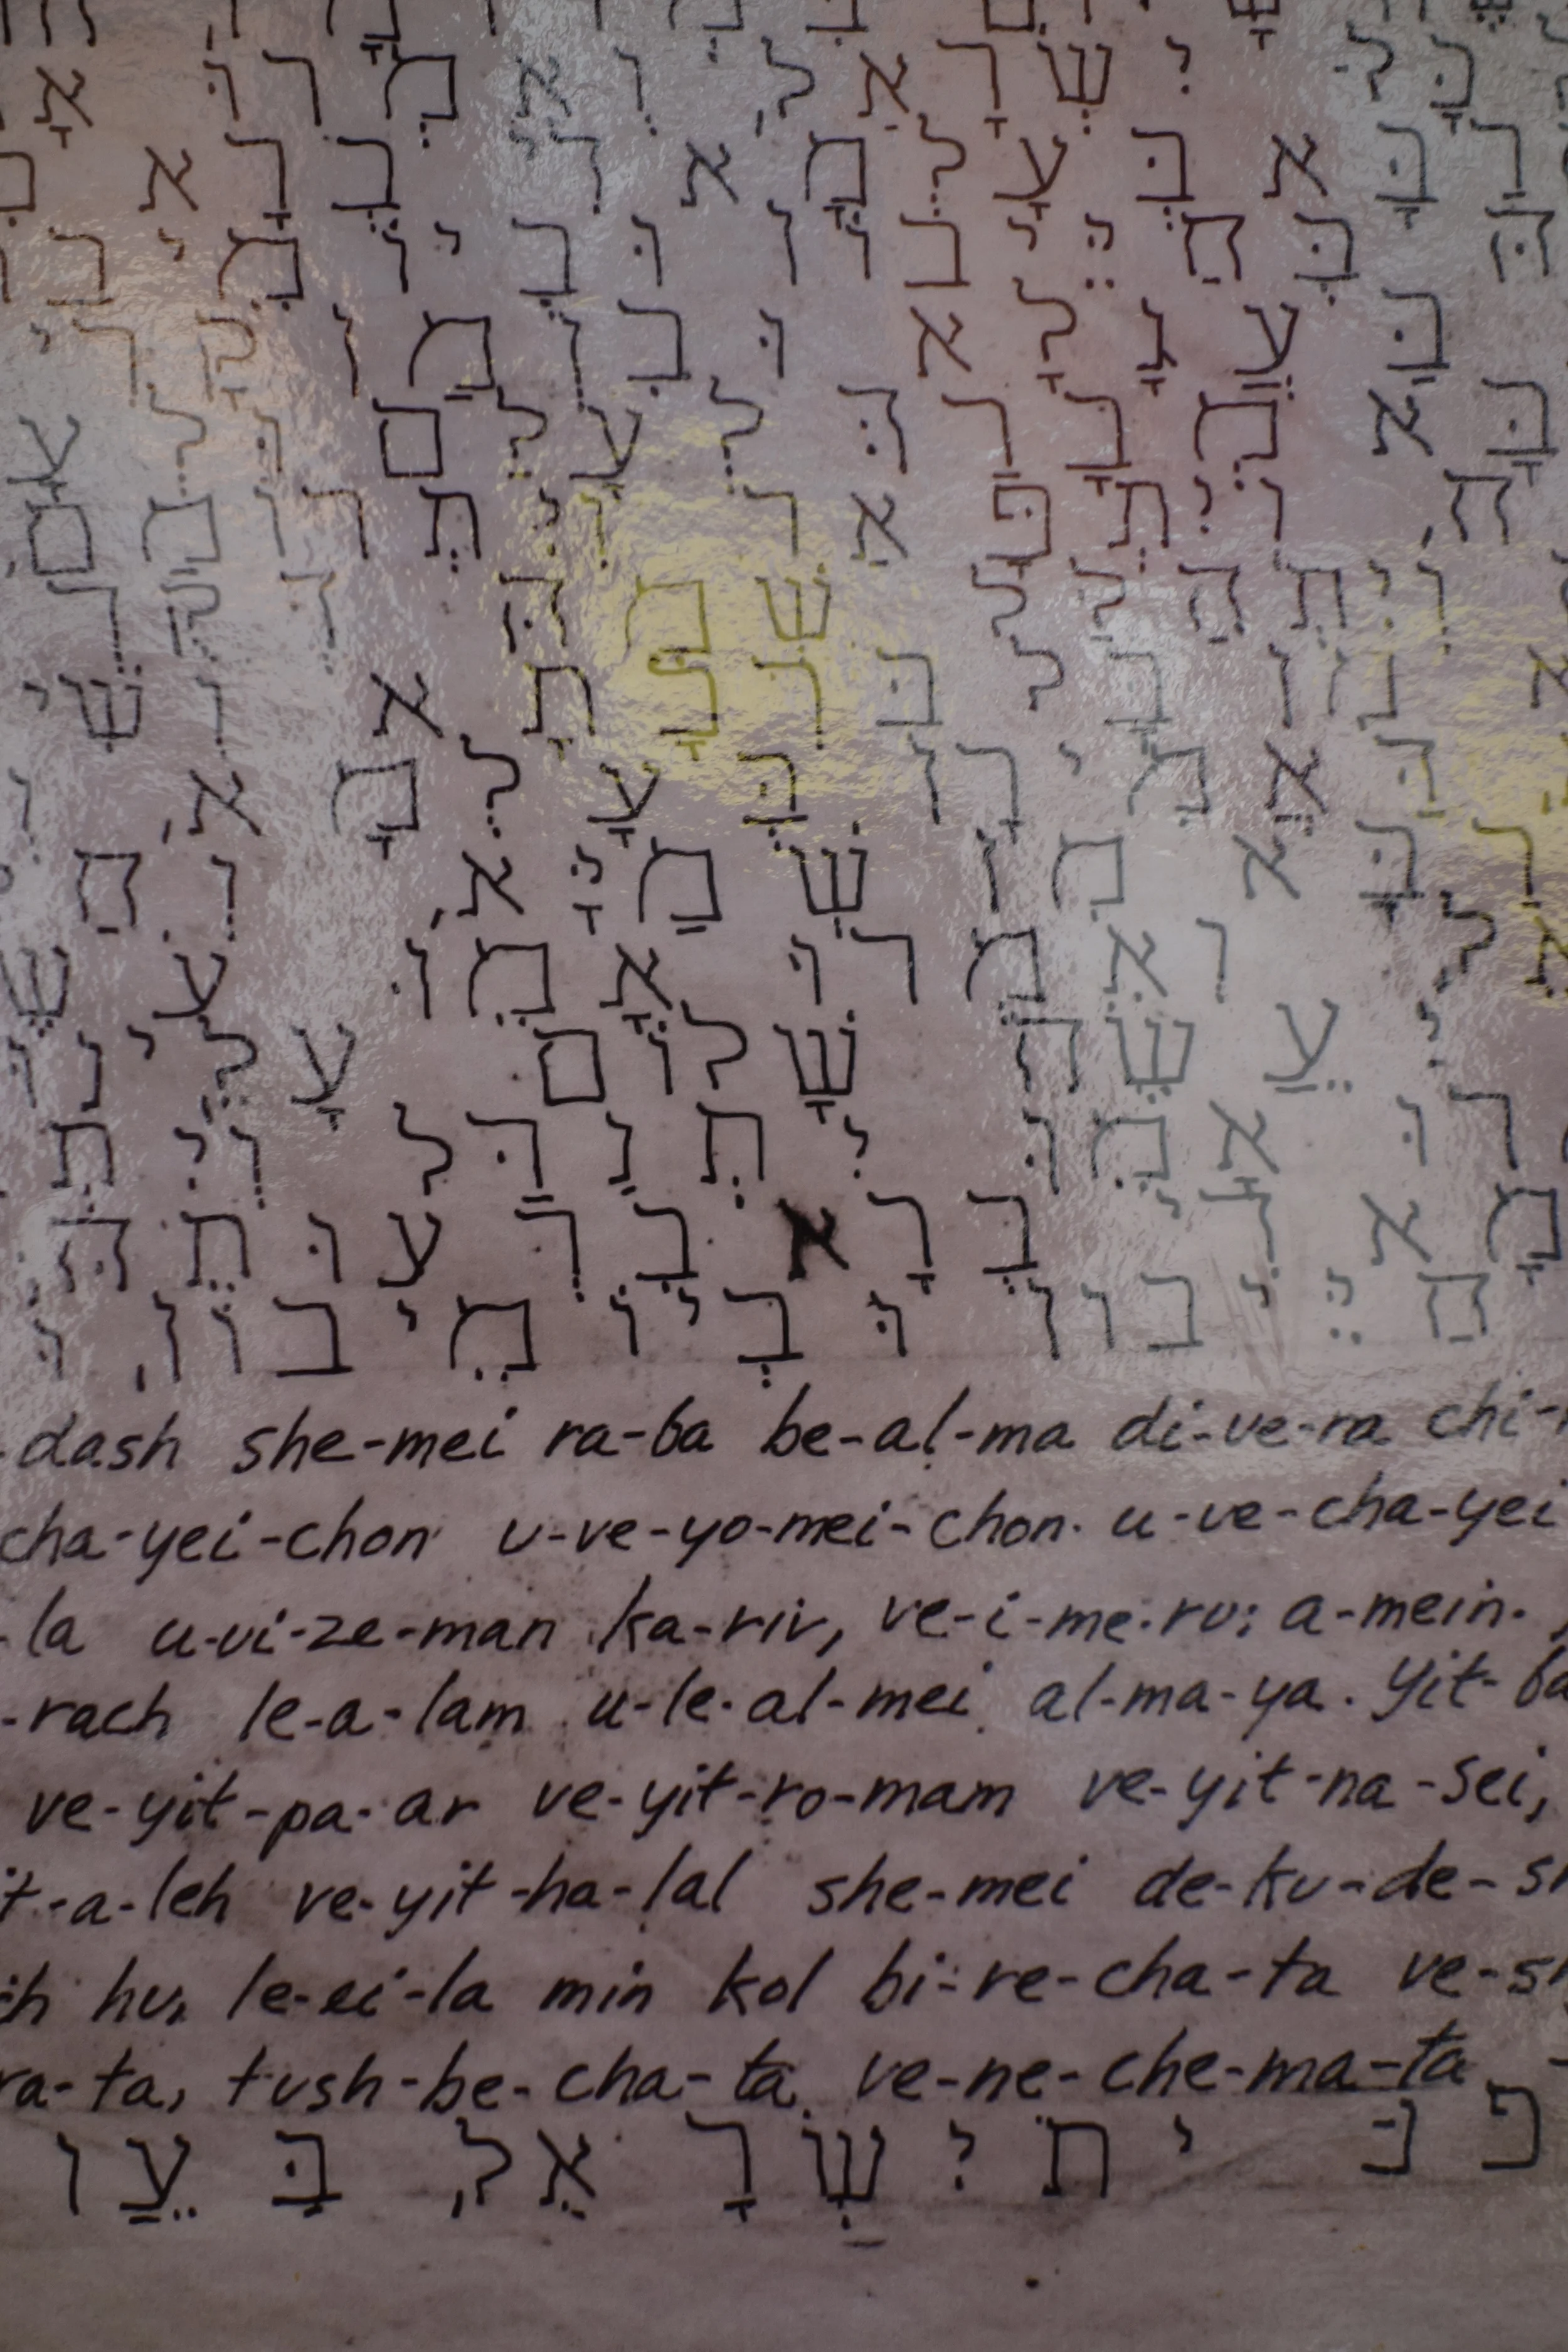 כָּל יִשְׂרָאֵל, וְאִמְרוּ אָ
רַבָּא בְּעָלְמָא דִּי בְרָא
הּ בְּחַיֵּיבוֹן וּבְיוֹמֵיבו
בַּעֲגָלָא וּבִזְמַן קָרִי
בָּא מְבָרַהּ לְעָלַם וּלְעָ
ח, וְיִתְפָּאַר וְיִתְרוֹמַם,
וְיִתְהַלַּל שְׁמֵהּ דְּקֻדְ
א מִן בָּל בִּרְבָתָא וְשִׁי
דַּאֲמִירָן בְּעָלְמָא, וְ
רַבָּא מִן שְׁמַיָּא, וְחַ
אֵל, וְאִמְרוּ אָמֵן. עֹשֶׂ
י עֲשֶׂה שָׁלוֹם עָלֵינוּ
רוּ אָמֵן. יִתְגַּדַּל וְיִתְ
מָא דִּי בְרָא בִרְעוּתֵהּ
חַיֵּיבון וּבְיוֹמֵיבוֹן, וּ
-dash she-mei ra-ba be-al-ma di-ve-ra chi-
cha-yei-chon u-ve-yo-mei-chon. u-ve-cha-yei
-la u-vi-ze-man ka-riv, ve-i-me-ru: a-mein.
-rach le-a-lam u-le-al-mei al-ma-ya. Yit-ba
ve-yit-pa-ar ve-yit-ro-mam ve-yit-na-sei,
it-a-leh ve-yit-ha-lal she-mei de-ku-de-sh
ch hu, le-ei-la min kol bi-re-cha-ta ve-sh
ra-ta, tush-be-cha-ta ve-ne-che-ma-ta
יִשְׂרָאֵל, בַּ